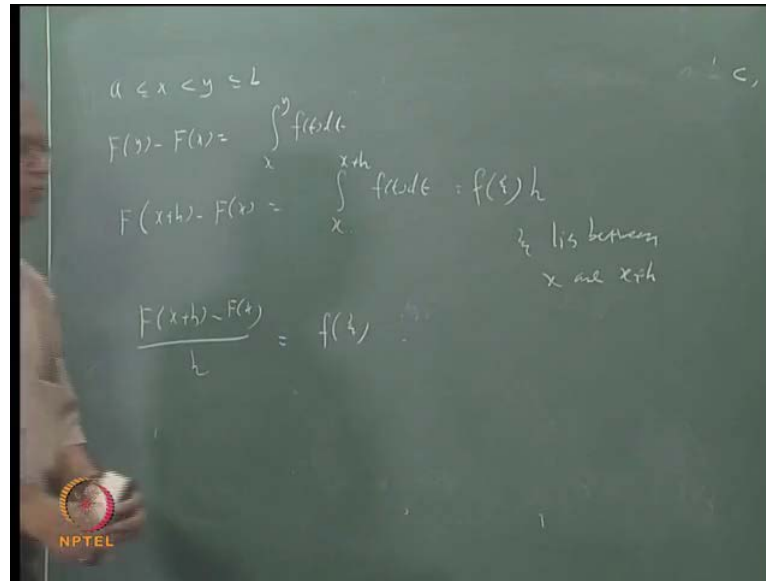 a ≤ x < y ≤ b
F(y) - F(x) = ∫_x^y f(t)dt
F(x+h) - F(x) = ∫_x^{x+h} f(t)dt = f(ξ) h
ξ lis between
x and x+h
(F(x+h) - F(x))/h = f(ξ)
c,
NPTEL